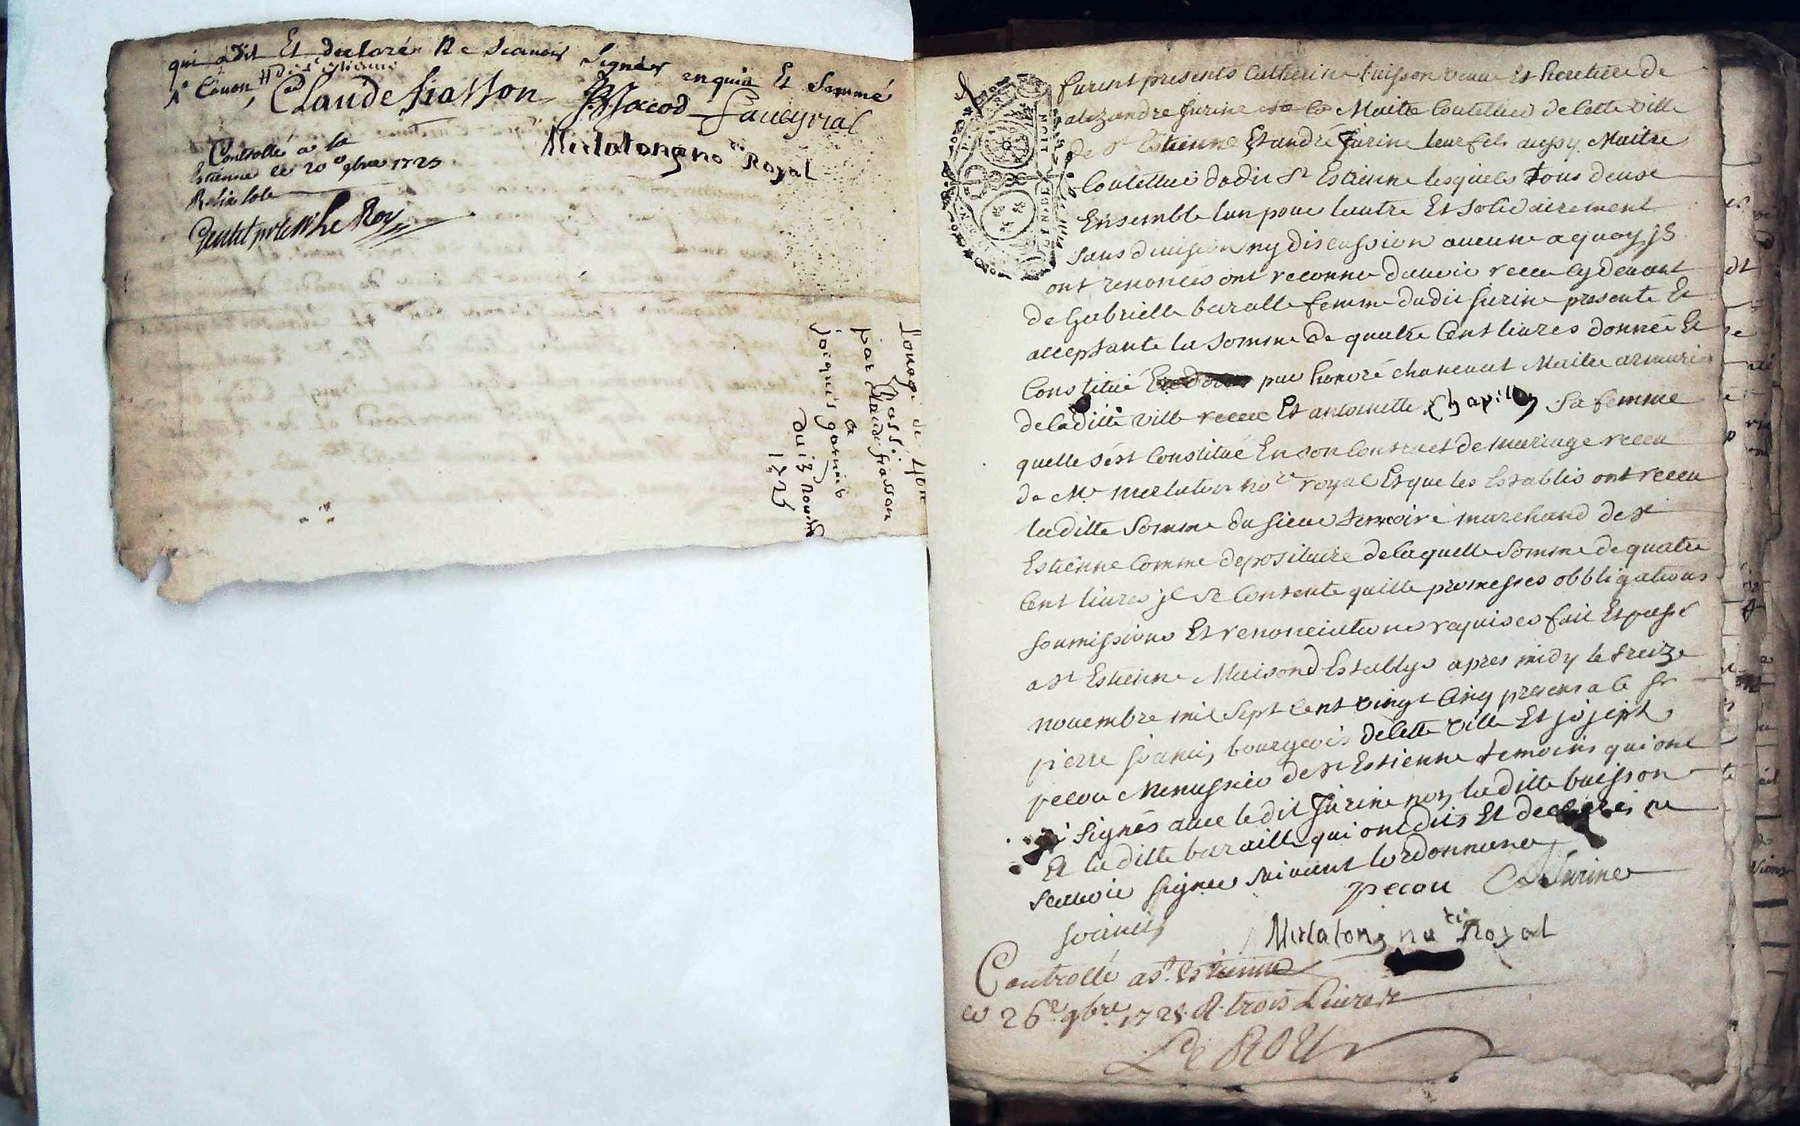 qui a dit Et declaré Ne scavoir signer enquis Et sommé
Claude frasson Jacod faueyrial
Merlatong no re Royal
Controllé a St
Estienne le 20e 9bre 1725
Le Roy
Louage de
passé
par Claude frasson
a
Jacques garnier
du 13 Novembre
1725
furent presents Catherine buisson veuve Et heretiere de
alexandre jurine Maitre Coutellier de Cette ville
de St Estienne Et andre Jurine leur fils aussy Maitre
Coutellier dudit St Estienne lesquels tous deux
Ensemble lun pour lautre Et solidairement
sans division ny discussion aucune a quoy js
ont renoncés ont reconnu davoir receu cy devant
de Gabrielle baralle femme dudit jurine presente Et
acceptante la somme de quatre Cent livres donnée Et
Constitué par honoré chancaut Maitre armurier
de laditte ville Et antoinette Chapillon sa femme
quelle s'est Constitué En son Contract de mariage receu
de Me merlaton nore royal Et que les Establis ont receu
laditte somme du sieur marchand de St
Estienne Comme depositaire de laquelle somme de quatre
Cent livres jl se Contente quitte promesses obbligations
soumissions Et renonciations requises fait Et passé
a St Estienne Maison d Establys apres midy le treize
novembre mil sept Cent vingt Cinq presens a Ce Sr
pierre joanis bourgeois de Cette ville Et joseph
pecou Menusier de St Estienne temoins qui ont
signés avec le dit Jurine non laditte buisson
Et la ditte baraille qui ont dits Et declarés ne
scavoir signer suivant lordonnance
pecou A Jurine
joanis
Merlatong no re Royal
Controllé a St Estienne
ce 26e 9bre 1725 R. trois Livres
Le ROY